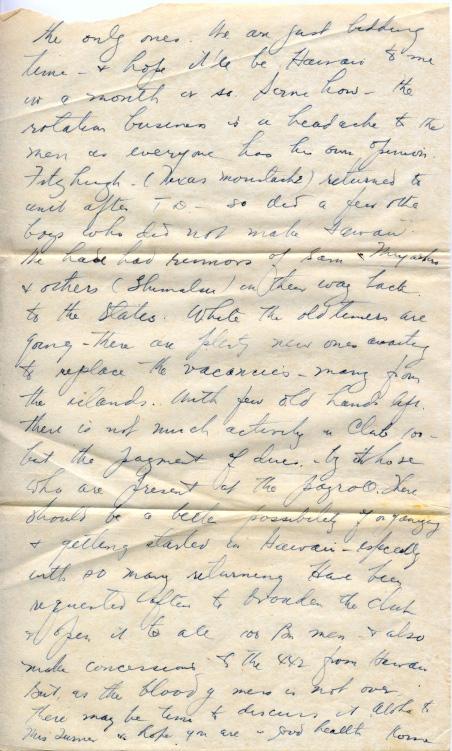 the only ones. We are just bidding
time - & hope it'll be Hawaii to me
in a month or so somehow - the
rotation business is a headache to the
men as everyone has his own opinion
Fitzhugh - (Texas moustache) returned to
unit after T D - so did a few other
boys who did not make Hawaii.
We have had rumors of Sam &
& others (Shumalue) on their way back
to the States. While the oldtimers are
going - there are plenty new ones awaiting
to replace the vacancies - many from
the islands. With few old hands left
there is not much activity in Club 100 -
but the payment of dues - by those
who are present at the payroll. There
should be a better possibility of organizing
& getting started in Hawaii - especially
with so many returning Have been
requested often to broaden the club
& open it to all 100 Bn men & also
make concessions to the 442 from Hawaii
But as the bloody mess is not over
there may be time to discuss it Aloha to
Mrs Turner & hope you are in good health